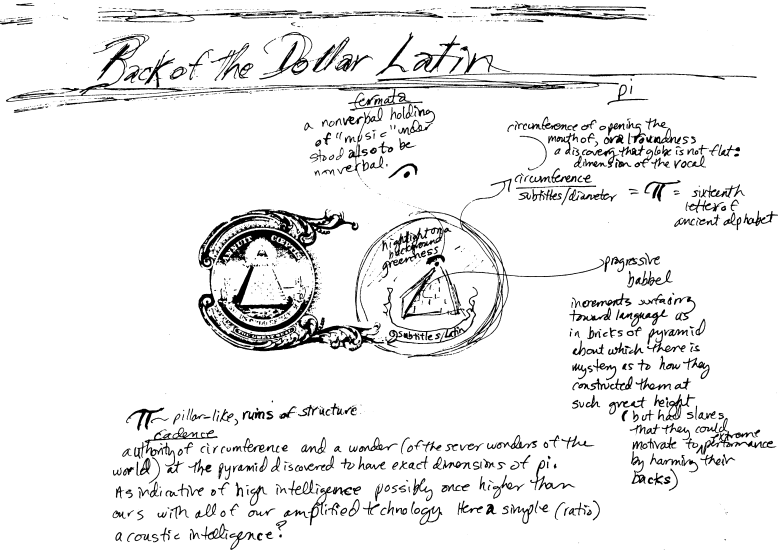 Back of the Dollar Latin
fermata
a nonverbal holding
of "music" under
stood also to be
nonverbal.
pi
circumference of opening the
mouth of, oral roundness
a discovery that globe is not flat:
dimension of the vocal
circumference
subtitles/diameter = π = sixteenth
letter of
ancient alphabet
ANNUIT COEPTIS
highlight on a
background
greenness
subtitles/Latin
progressive
babbel
increments surfacing
toward language as
in bricks of pyramid
about which there is
mystery as to how they
constructed them at
such great height
(but had slaves
that they could
motivate to extreme performance
by harming their
backs)
π ~ pillar-like, ruins of structure
cadence
authority of circumference and a wonder (of the sever wonders of the
world) at the pyramid discovered to have exact dimensions of pi.
As indicative of high intelligence possibly once higher than
ours with all of our amplified technology. Here a simple (ratio)
acoustic intelligence?